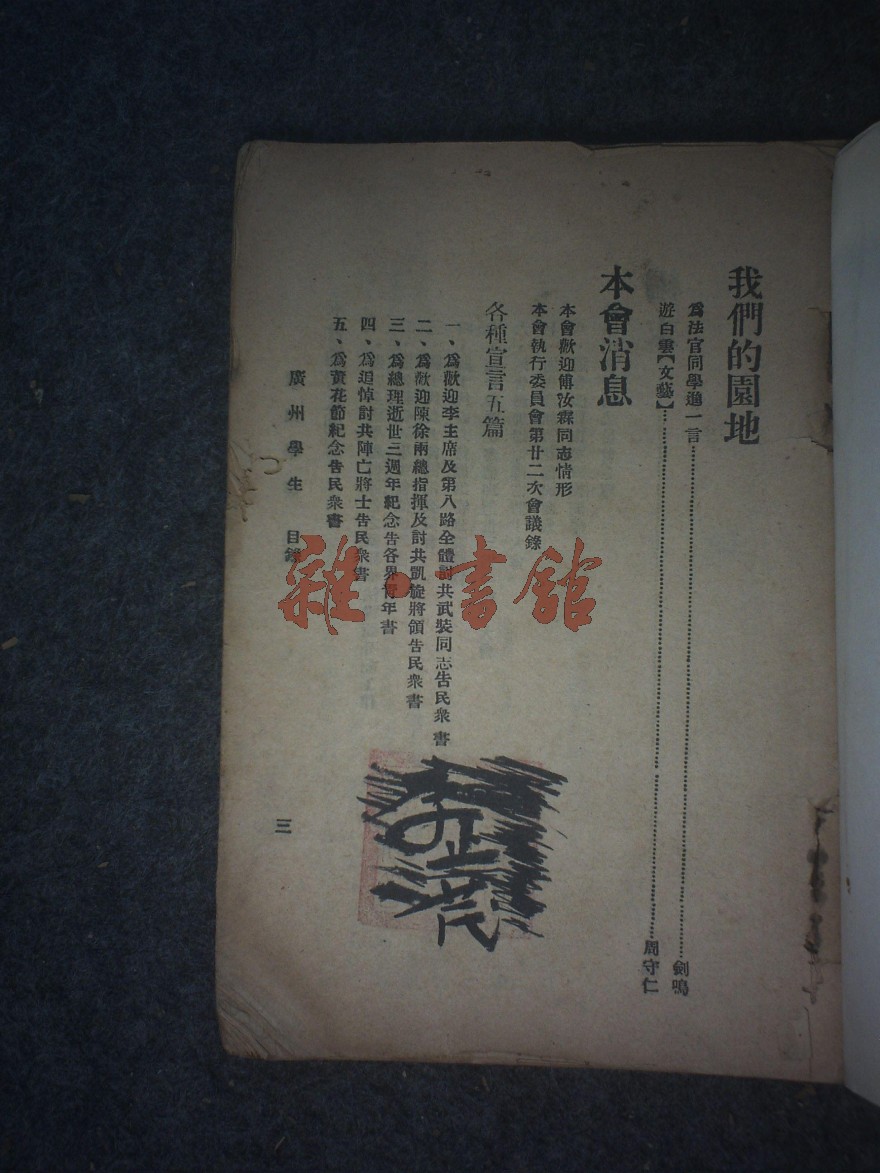 我們的園地
爲法官同學進一言……劍鳴
遊白雲【文藝】……周守仁
本會消息
本會歡迎傅汝霖同志情形
本會執行委員會第廿二次會議錄
各種宣言五篇
一、爲歡迎李主席及第八路全體討共武裝同志告民衆書
二、爲歡迎陳徐兩總指揮及討共凱旋將領告民衆書
三、爲總理逝世三週年紀念告各界靑年書
四、爲追悼討共陣亡將士告民衆書
五、爲黃花節紀念告民衆書
廣州學生 目錄
三
雜·書館